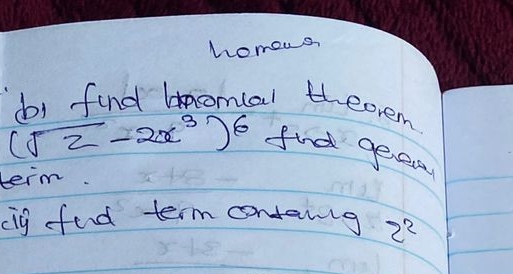 b) find binomial theorem
(√z - 2x³)⁶ find general
term.
cii) find term containing z²